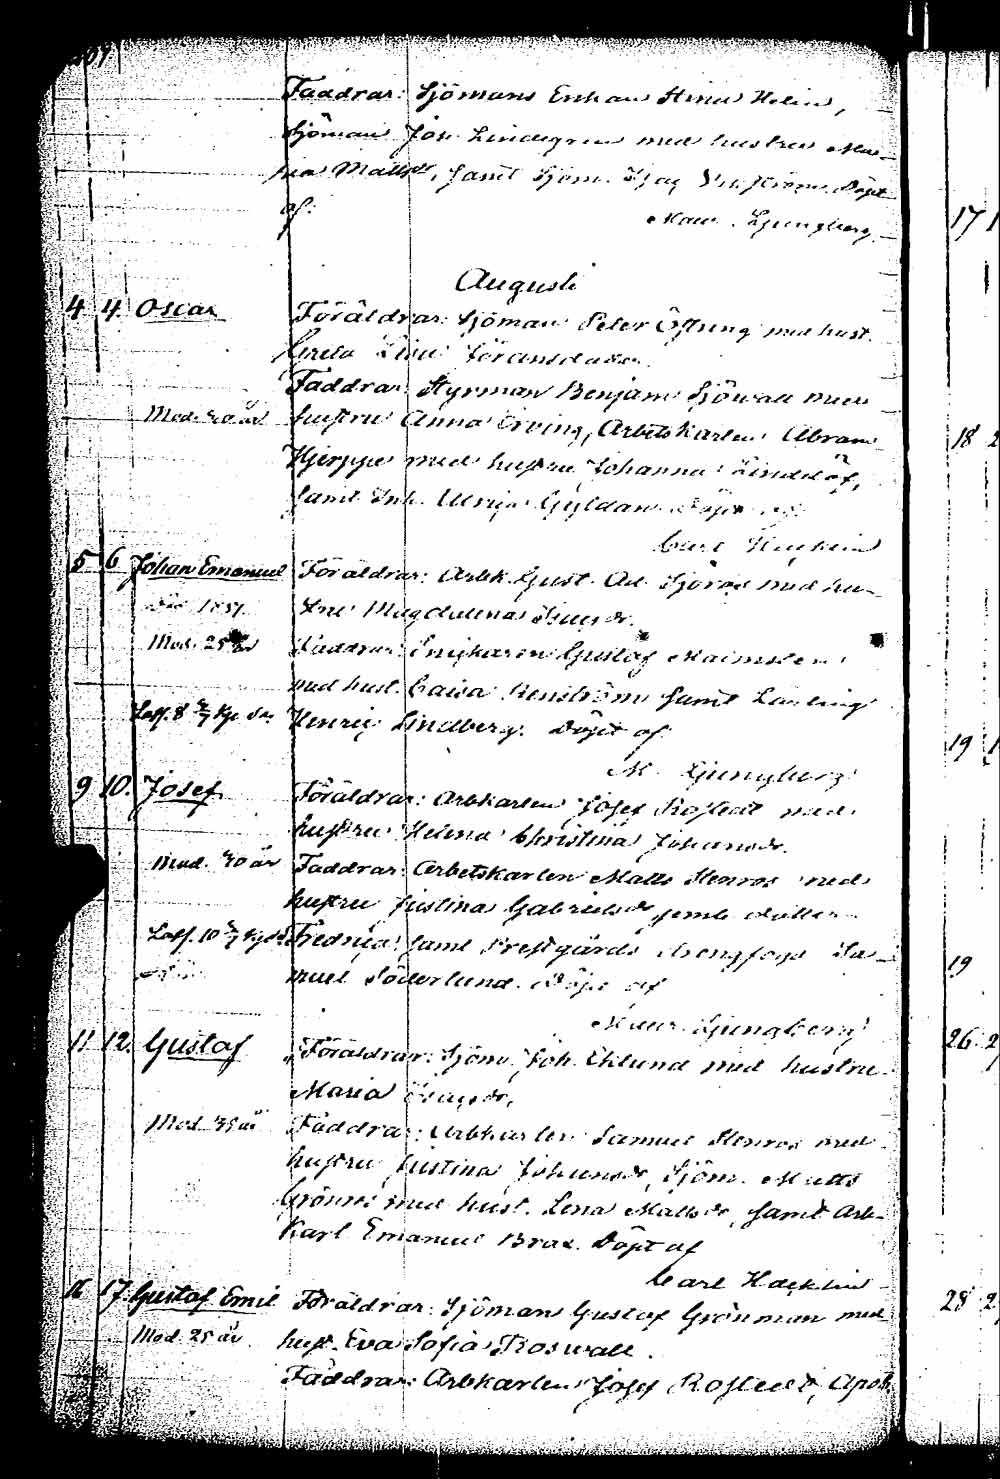 Faddrar: Sjömans Enkan Stina Helin,
Sjöman Joh. Lindegren med hustru Ma-
ria Mattsdr, samt Sjöm. Isac Döpt
af: Maur. Ljungberg.
Augusti
4 4. Oscar Föräldrar: Sjöman Peter med hust.
Greta Lisa Göransdotter.
Faddrar: Styrman Benjam. Sjöwall med
Mod. 40 år hustru Anna Erving, Arbetskarlen Abram
Hjerppe med hustru Johanna Lindelöf,
samt Inh. Ulrica Gyldan. Döpt af:
Carl Hacklin
5 6 Johan Emanuel Föräldrar: Arbk. Gust. Ad. Sjöros med hu-
1837 stru Magdalena Isacsdr.
Mod. 25 år Faddrar: Gustaf Malmsten
med hust. Caisa Renström samt Lärling
Henric Lindberg. Döpt af
M. Ljungberg
9 10. Josef Föräldrar: Arbkarlen Josef Rostedt med
hustru Helena Christina Johansdr.
Mod. 40 år Faddrar: Arbetskarlen Matts Stenros med
hustru Justina Gabrielsdr jemte dotter
Fredrica samt Prestgårds Drengfogd Sa-
muel Söderlund. Döpt af
Maur. Ljungberg
11 12. Gustaf Föräldrar: Sjöm. Joh. Eklund med hustru
Maria Isacsdr.
Mod. 35 år Faddrar: Arbkarlen Samuel Stenros med
hustru Justina Johansdr, Sjöm. Matts
Grönroos med hust. Lena Mattsdr, samt Arb-
Karl Emanuel Brax. Döpt af
Carl Hacklin
16 17. Gustaf Emil Föräldrar: Sjöman Gustaf Grönman med
Mod. 25 år hust. Eva Sofia Roswall.
Faddrar: Arbkarlen Josef Rostedt, Apoth
17 1
18 2
19 1
19
26 2
28 2